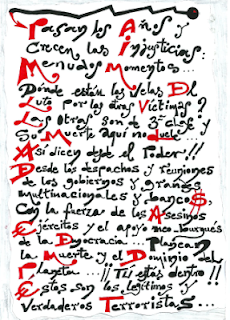 Pasan los Años y
Crecen las Injusticias:
Menudos Momentos...
Dónde están las Velas Del
Luto por las otras Víctimas?
Las otras son de 3ª clase y
Su Muerte aquí no duele...
Así dicen desde el Poder!!
Desde los despachos y reuniones
de los gobiernos y grandes
multinacionales y bancos,
Con la fuerza de los Asesinos
Ejércitos y el apoyo
de la Democracia... Planean
la Muerte y el Dominio del
Planeta...¡¡Tú estás dentro!!
Estos son los legítimos y
Verdaderos Terroristas...